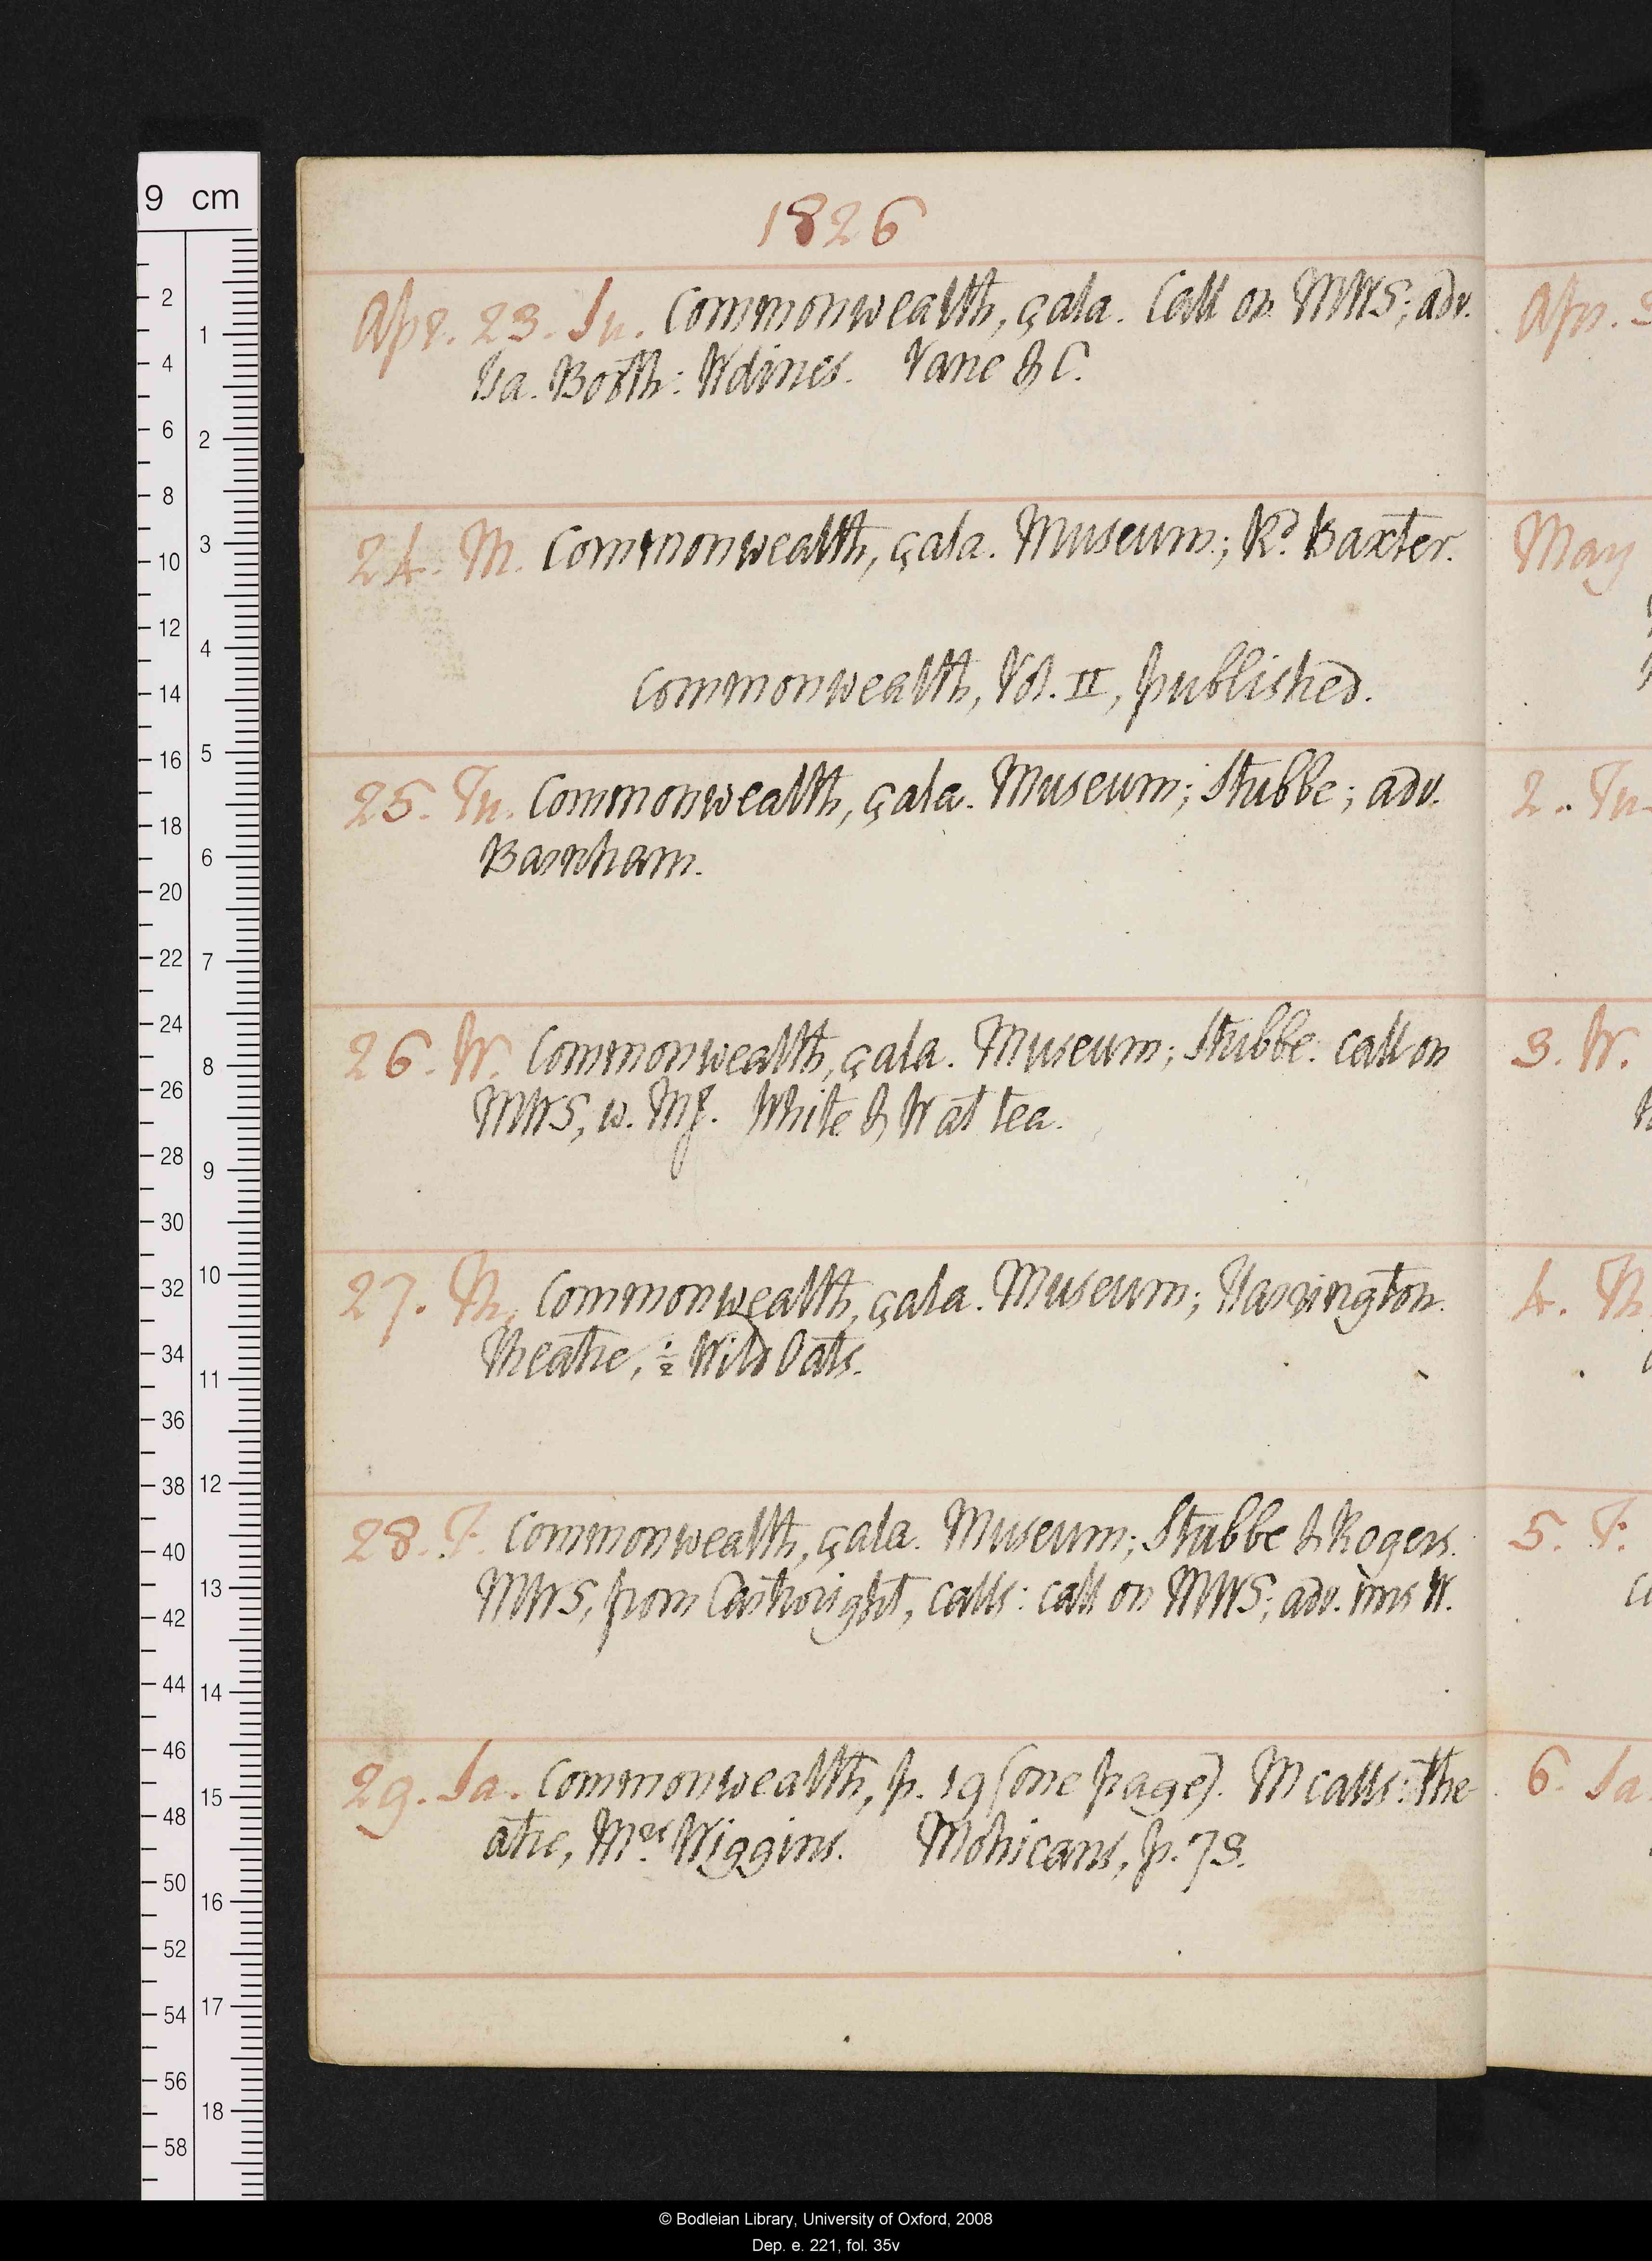 1826
Apr. 23. Su. Commonwealth, çala. Call on MWS; adv.
Ha. Booth: W dines. Vane & C.
24. M. Commonwealth, çala. Museum; Rd. Baxter.
Commonwealth, Vol. II, published.
25. Tu. Commonwealth, çala. Museum; Stubbe; adv.
Barnham.
26. W. Commonwealth, çala. Museum; Stubbe: call on
MWS, w. MJ. White & W at tea.
27. Th. Commonwealth, çala. Museum; Harrington.
Theatre, ½ Wild Oats.
28. F. Commonwealth, çala. Museum; Stubbe & Rogers.
MWS, from Cartwright, calls: call on MWS; adv. mrs W.
29. Sa. Commonwealth, p. 19 (one page). M calls: the-
atre, Mrs. Wiggins. Mohicans, p. 73.
Apr.
May
2. Tu.
3. W.
4. Th
5. F.
6. Sa
9 cm
© Bodleian Library, University of Oxford, 2008
Dep. e. 221, fol. 35v